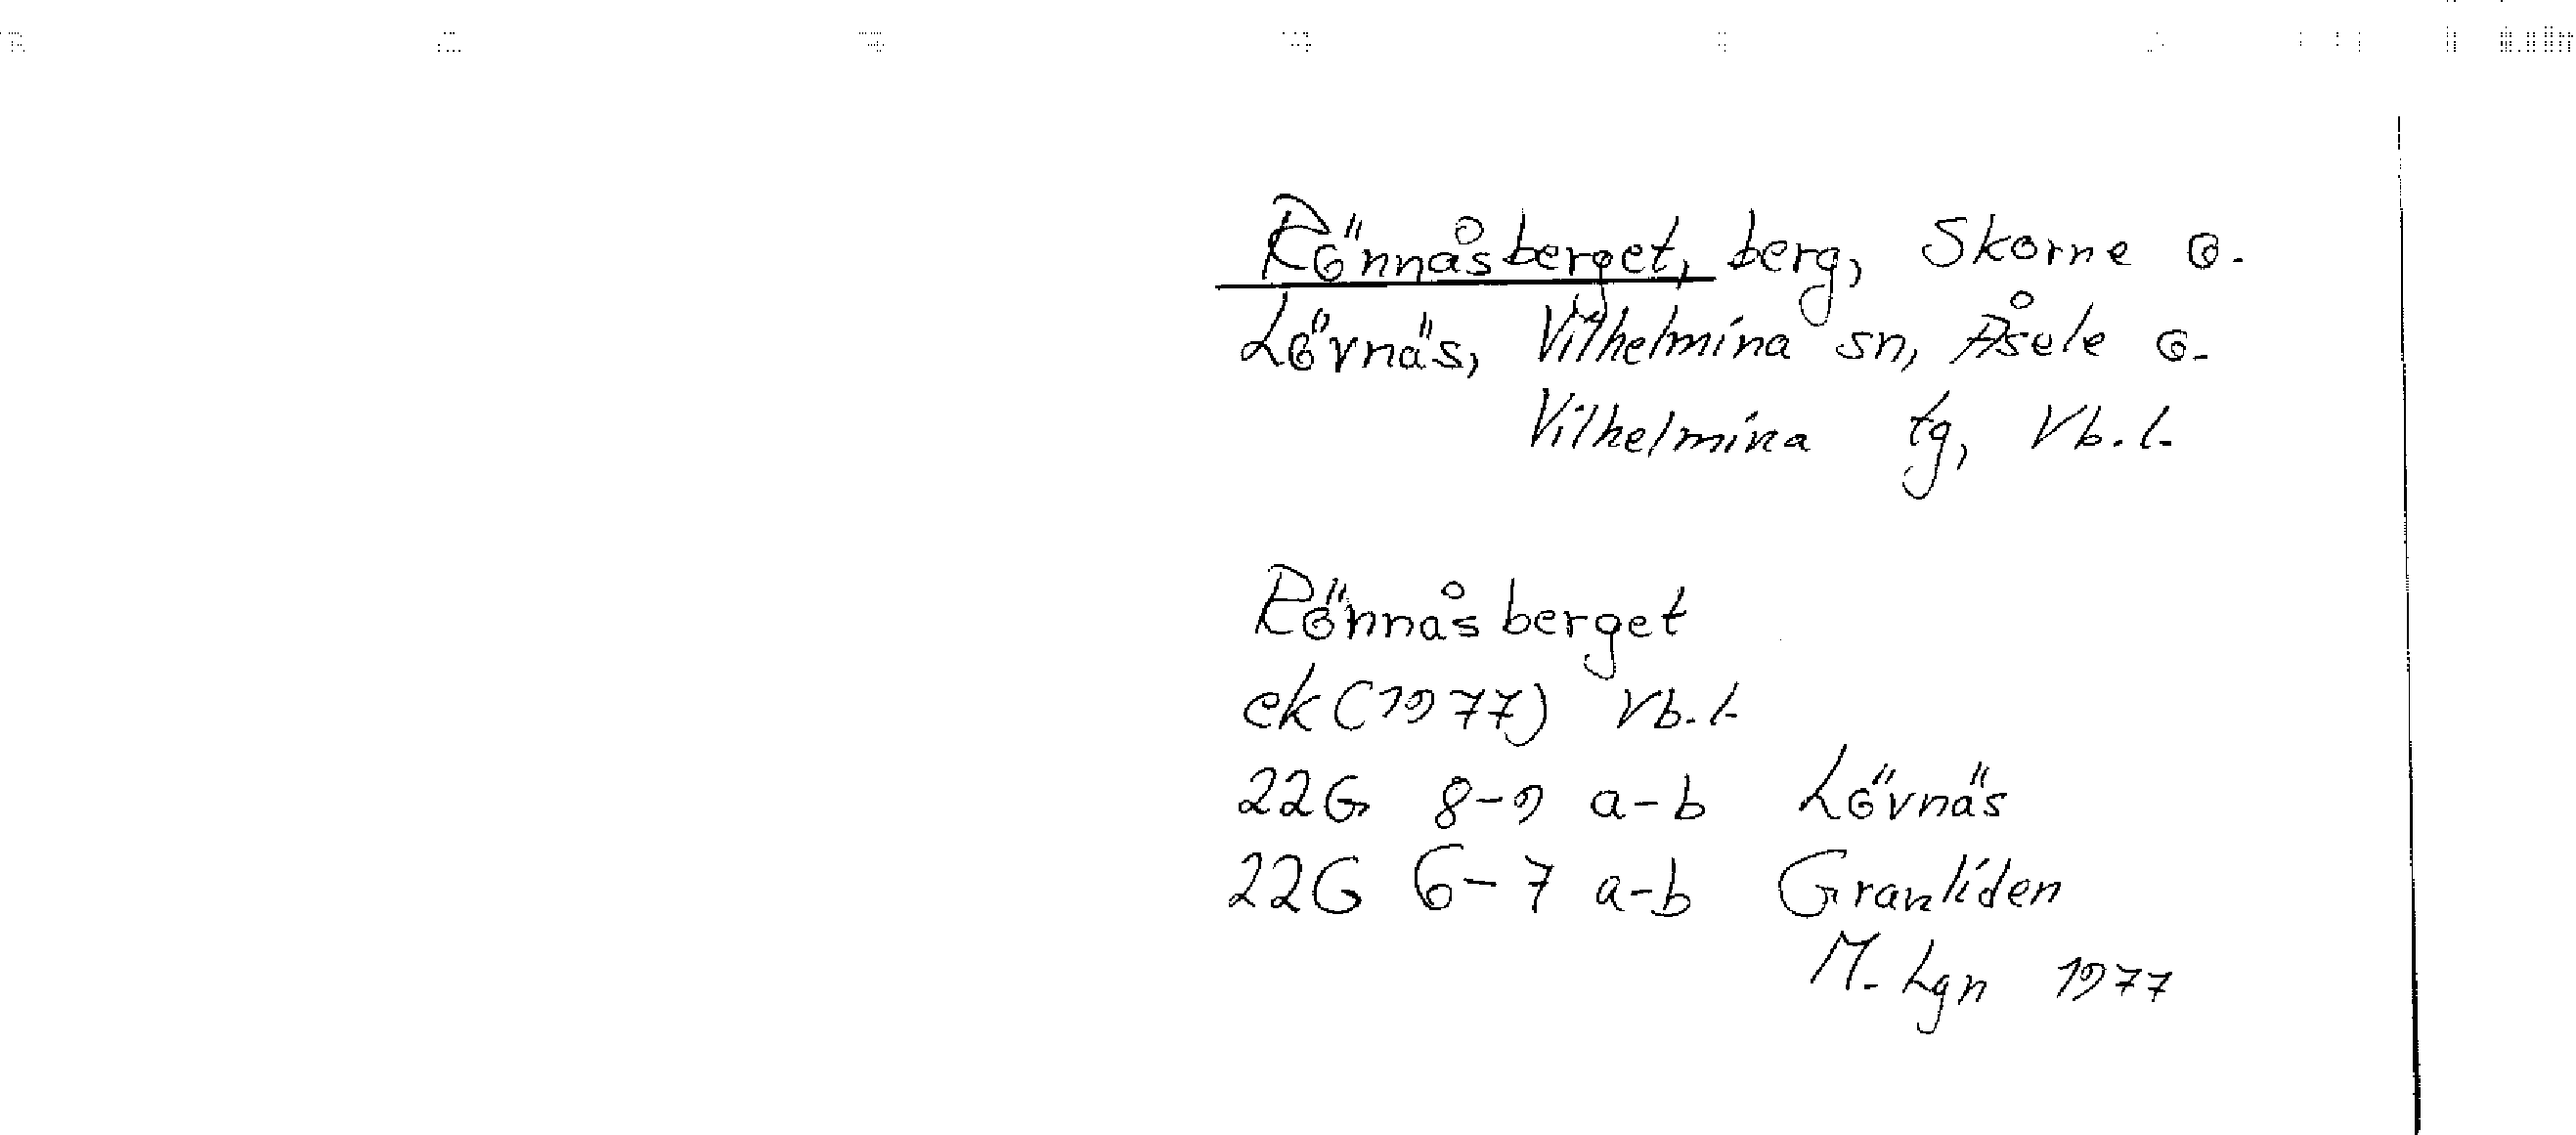 Rönnåsberget, berg, Skorne o.
Lövnäs, Vilhelmina sn, Åsele o.
Vilhelmina tg, Vb.l.
Rönnåsberget
ek (1977) Vb.l.
22G 8-9 a-b Lövnäs
22G 6-7 a-b Granliden
M. Lgn 1977